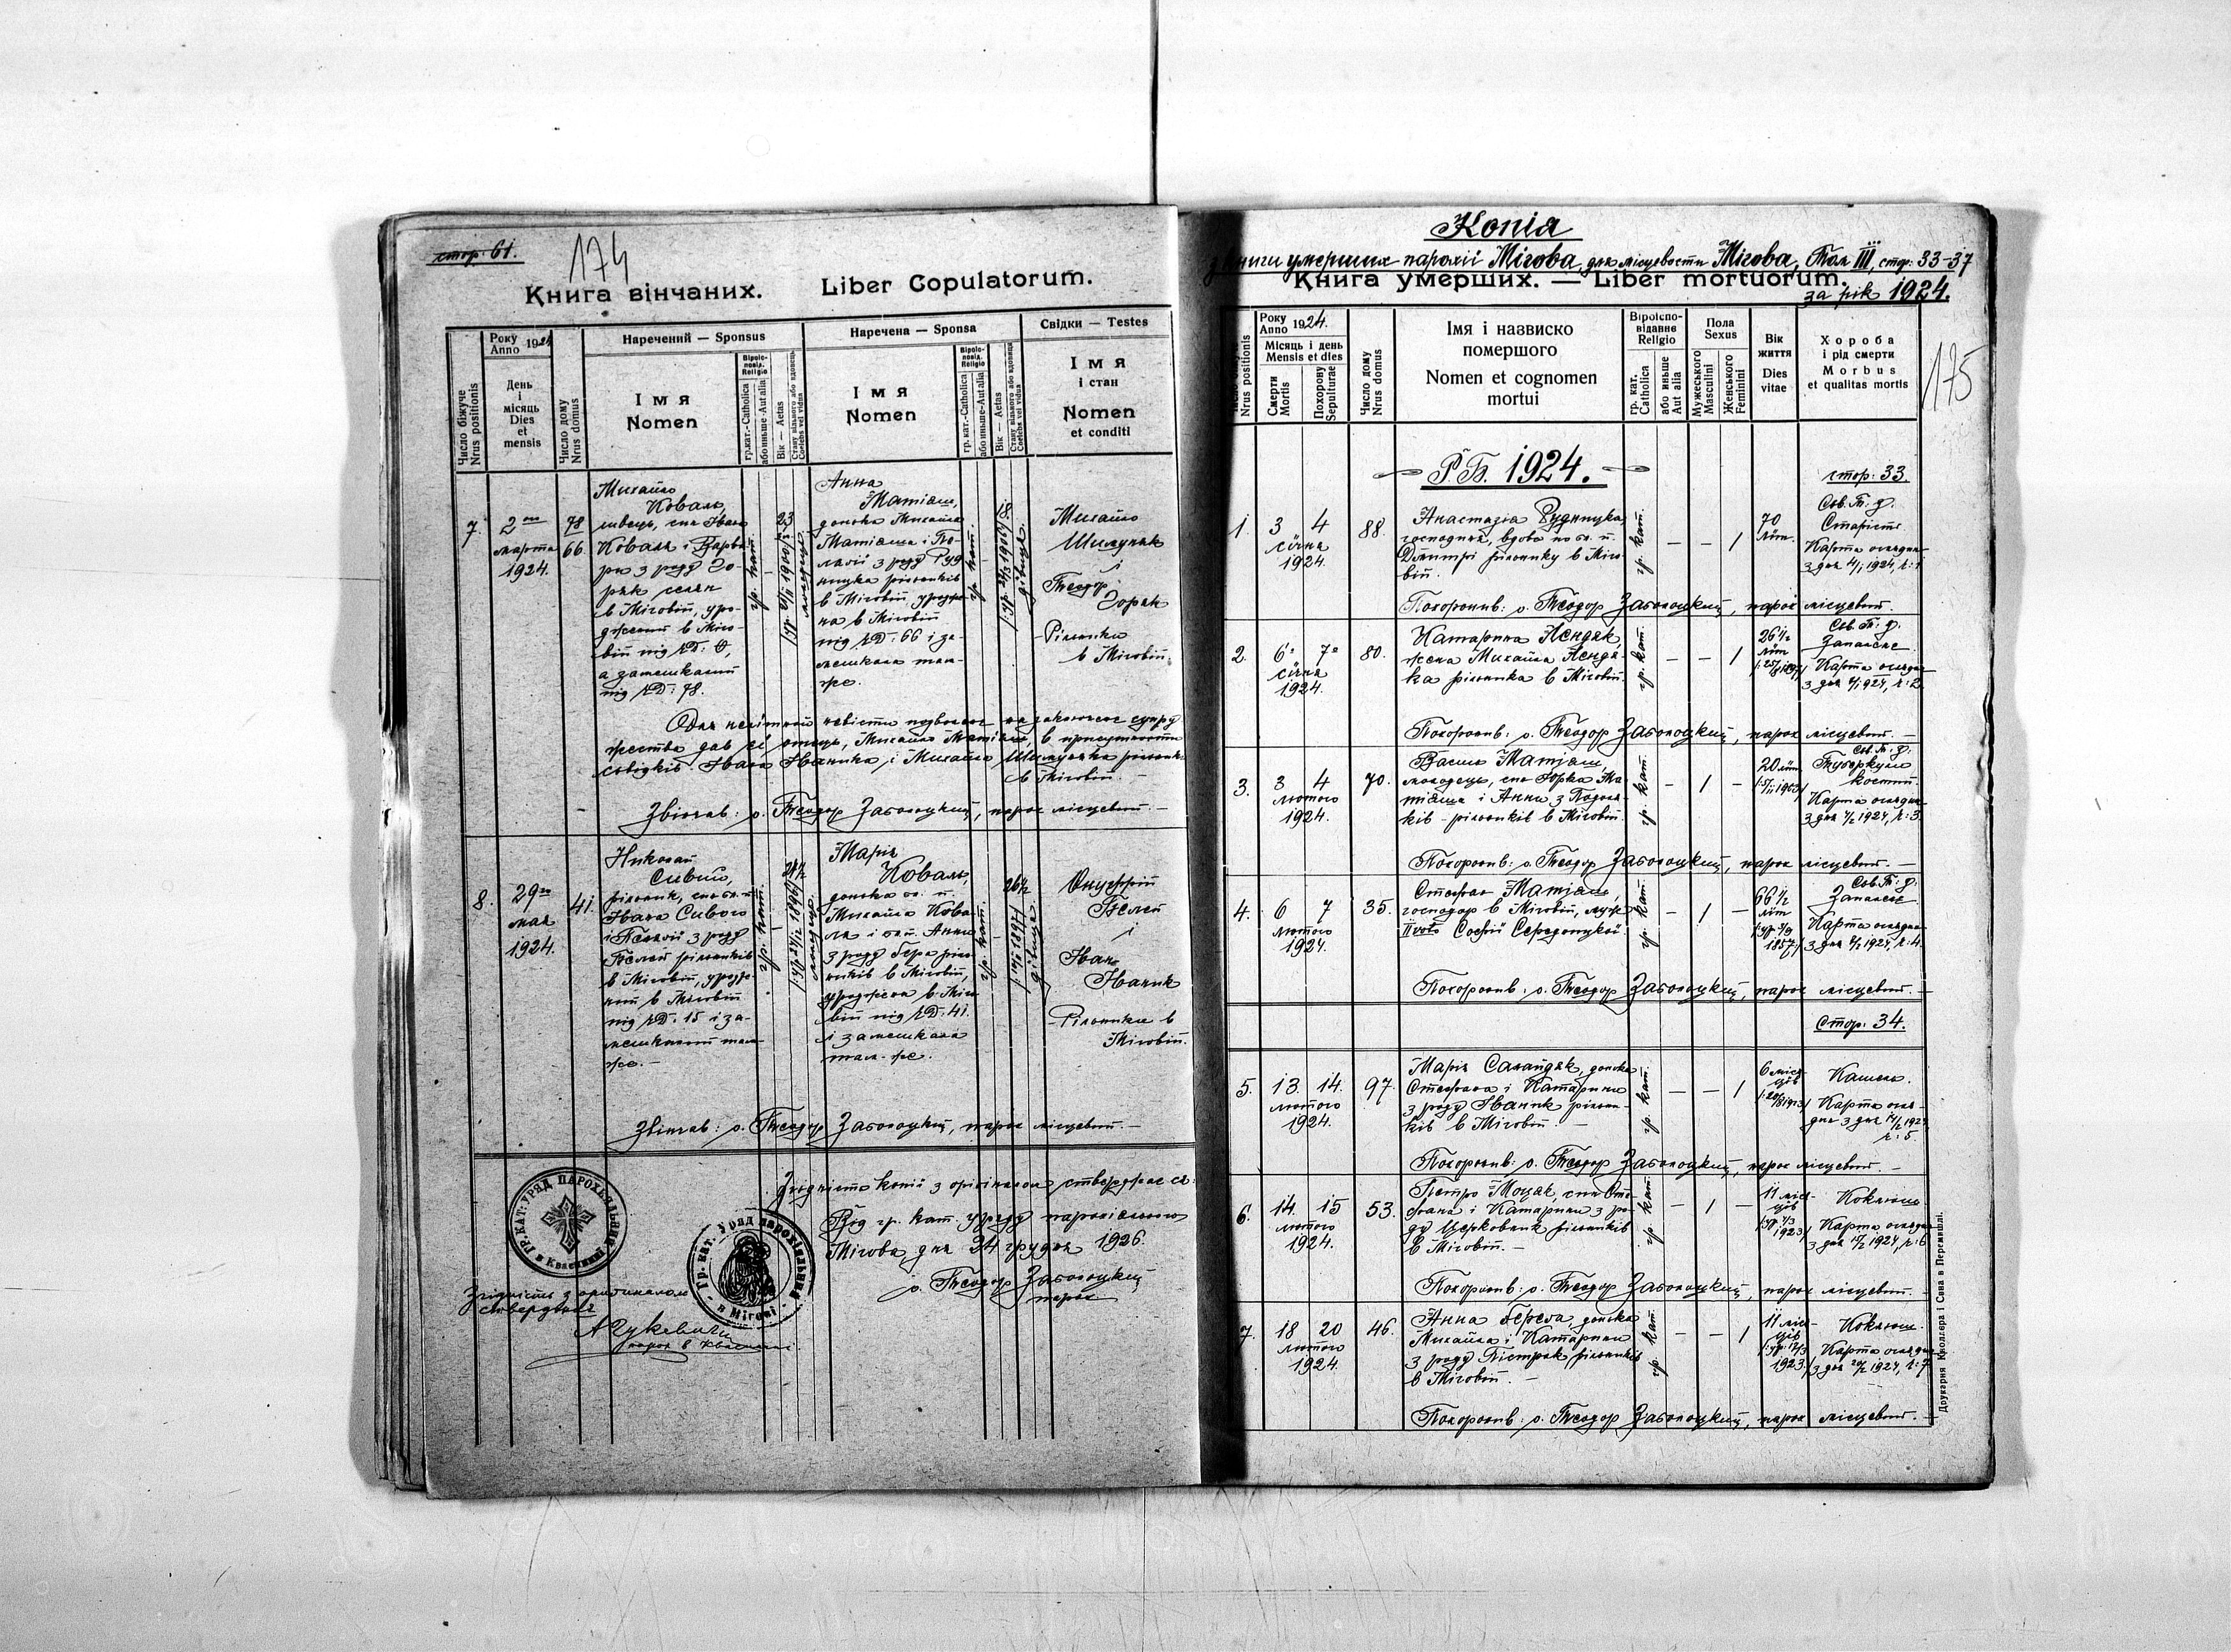 стор: 61.
174
Книга вінчаних. Liber Copulatorum.
Число біжуче
Nrus positionis
Року
Anno 1924
День
і
місяць
Dies
et
mensis
Число дому
Nrus domus
Наречений — Sponsus
Імя
Nomen
Віроіс-
повід.
Religio
гр.кат.-Catholica
або иньше-Aut alia
Вік — Aetas
Стану вільного або вдовець
Coelebs vel vidua
Наречена — Sponsa
Імя
Nomen
Віроіс-
повід.
Religio
гр. кат.-Catholica
або иньше-Aut alia
Вік — Aetas
Стану вільного або вдовиця
Coelebs vel vidua
Свідки — Testes
Імя
і стан
Nomen
et conditi
7.
2
марта
1924.
78
66.
Михайло
Коваль,
швець, син Івана
Коваля і Варва-
ри з роду Го-
рак селян
в Міговій, уро-
джений в Міго-
він під чД:
а замешкалий
під чД: 78.
гр. кат.
23
Анна
Матіяш,
донька Михайла
Матіяша і По-
лагії з роду Руд
ницка рільників
в Міговій, уродже-
на в Міговій
під чД: 66 і за-
мешкала там-
же.
гр. кат.
18
дівиця
Михайло
Шилуняк
і
Теодор
Горяк
- Рільники
в Міговій.
Для нелітної невісти позволеє на заключеє супру
жества дав єї отець, Михайло Матіяш в присутности
свідків Івана Іваника, і Михайла Шилуняка рільник.
в Міговій. —
Звінчав: о. Теодор Заболоцкий, парох місцевий. —
8.
29
мая
1924.
41.
Николай
Сивий,
рільник, син
Івана Сивого
і Пелагії з роду
Телеп рільників
в Міговій, уродже-
ний в Міговій
під чД: 15 і за-
мешкалий там-
же. —
гр. кат.
Марія
Коваль,
донька
Михайла Кова-
ля і Анни
з роду Гера ріль-
ників в Міговій,
уроджена в Міго-
вій під чД: 41.
і замешкала
там-же.
гр. кат.
26½
дівиця
Онуфрій
Телеп
і
Іван
Іваник
- Рільники в
Міговій.
Звінчав: о. Теодор Заболоцкий, парох місцевий. —
Згідність копії з оригіналом стверджає ся:
Від гр. кат. уряду парохіяльного
Мігова, дня 24 грудня 1926.
о. Теодор Заболоцкий
парох
ГР. КАТ. УРЯД ПАРОХІЯЛЬНИЙ
в Квасинині
Гр.-кат. Уряд парохіяльний
- в Мігові -
Згідність з оригіналом
стверджає
парох в Квасинині.
Копія
з книги умерших парохії Мігова, для місцевости Мігова, Том III, стор: 33-37
Книга умерших. — Liber mortuorum.
за рік 1924.
175
Nrus positionis
Року
Anno 1924.
Місяць і день
Mensis et dies
Смерти
Mortis
Похорону
Sepulturae
Число дому
Nrus domus
Імя і назвиско
помершого
Nomen et cognomen
mortui
Віроіспо-
відавне
Religio
гр. кат.
Catholica
або иньше
Aut alia
Пола
Sexus
Мужеського
Masculini
Женського
Feminini
Вік
життя
Dies
vitae
Хороба
і рід смерти
Morbus
et qualitas mortis
Р.Б. 1924.
стор: 33.
1.
3 4
січня
1924.
88.
Анастазія Рудницка
господиня, вдова по бл. п.
Димитрі рільнику в Міго-
вій.
гр. кат.
— — 1
70
літ.
Св. Т. д.
Старість
Карта оглядин
з дня 4/I 1924, ч: 1
Похоронив: о. Теодор Заболоцкий, парох місцевий.
2.
6 7
січня
1924.
80.
Катарина Лендяк,
жена Михайла Лендя-
ка рільника в Міговій.
гр. кат.
— — 1
26½
літ
Св. Т. д.
Запаленє
Карта оглядин
з дня 1924, ч: 2.
Похоронив: о. Теодор Заболоцкий, парох місцевий. —
3.
3 4
лютого
1924.
70.
Василь Матіяш,
молодець, син Юрка Ма-
тіяша і Анни з Подоля-
ків - рільників в Міговій.
гр. кат.
— 1 —
20 літ
Св. Т. д.
Туберкули
костий.
Карта оглядин
з дня 4/2 1924, ч: 3.
Похоронив: о. Теодор Заболоцкий, парох місцевий. —
4.
6 7
лютого
1924.
35.
Стефан Матіяш,
господар в Міговій, муж
II voto Софії Середницкої.
гр. кат.
— 1 —
66½
літ
1857
Св. Т. д.
Запаленє
Карта оглядин
з дня 1924, ч: 4.
Похоронив: о. Теодор Заболоцкий, парох місцевий. —
Стор: 34.
5.
13. 14.
лютого
1924.
97.
Марія Саландяк, донька
Стефана і Катарини
з роду Іваник рільни-
ків в Міговій. —
гр. кат.
— — 1
6 міся-
ців
Кашель.
Карта огля-
дин з дня 1924
ч: 5
Похоронив: о. Теодор Заболоцкий, парох місцевий. —
6.
14. 15
лютого
1924.
53.
Петро Моцак, син Сте-
фана і Катарини з ро-
ду Церковник рільників
в Міговій. —
гр. кат.
— 1 —
11 міся-
ців
1923
Коклюш
Карта оглядин
з дня 1924, ч: 6
Похоронив: о. Теодор Заболоцкий, парох місцевий. —
7.
18 20
лютого
1924.
46.
Анна Береза, донька
Михайла і Катарини
з роду Пістрак рільників
в Міговій. —
гр. кат.
— — 1
11 міся-
ців
1923
Коклюш.
Карта оглядин
з дня 20/2 1924, ч: 7
Похоронив: о. Теодор Заболоцкий, парох місцевий. —
Друкарня Кноллера і Сина в Перемишлі.